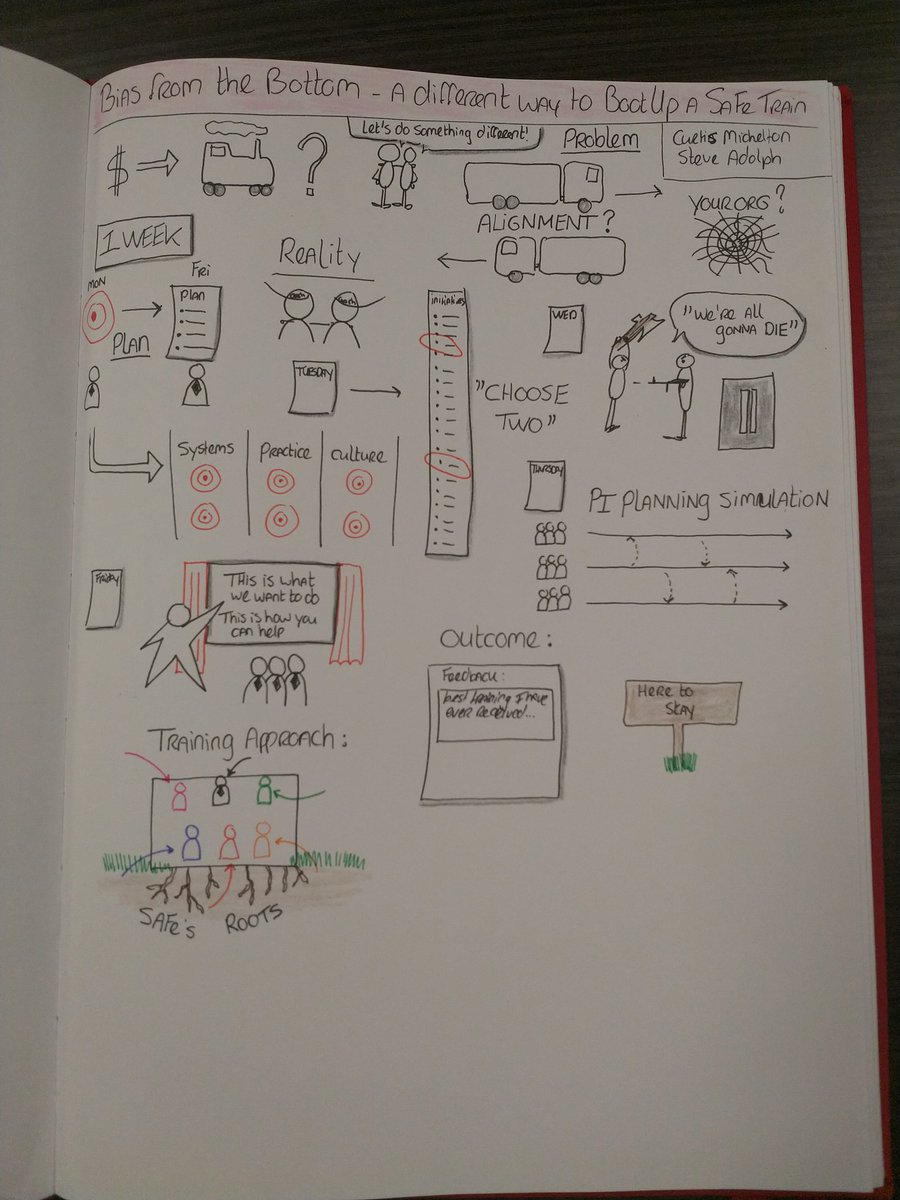 Bias from the Bottom - A different way to Boot Up A SAFe Train
Let's do something different!
Problem
Curtis Michelton
Steve Adolph
$
?
ALIGNMENT?
YOUR ORG?
1 WEEK
Reality
MON
FRI
PLAN
PLAN
TUESDAY
initiatives
"CHOOSE
TWO"
WED
"We're all
gonna DIE"
Systems
Practice
Culture
THURSDAY
PI PLANNING SIMULATION
Friday
This is what
we want to do
This is how you
can help
Outcome:
Feedback:
best training I have
ever received...
Here to
Stay
Training Approach:
SAFe's ROOTS